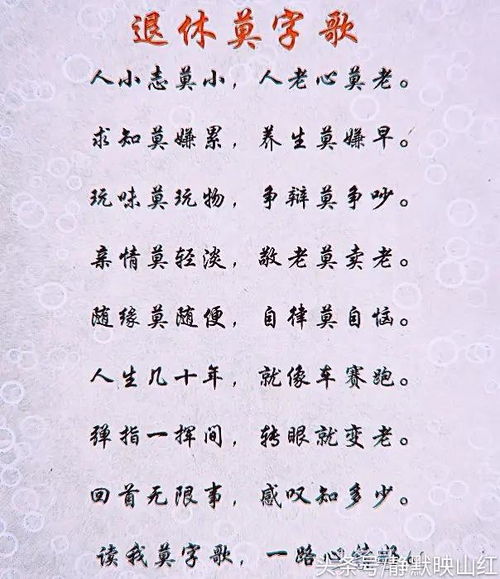 退休莫字歌
人小志莫小，人老心莫老。
求知莫嫌累，养生莫嫌早。
玩味莫玩物，争辩莫争吵。
亲情莫轻淡，敬老莫卖老。
随缘莫随便，自律莫自恼。
人生几十年，就像车赛跑。
弹指一挥间，转眼就变老。
回首无限事，感叹知多少。
读我莫字歌，一路心
头条号/静默映山红